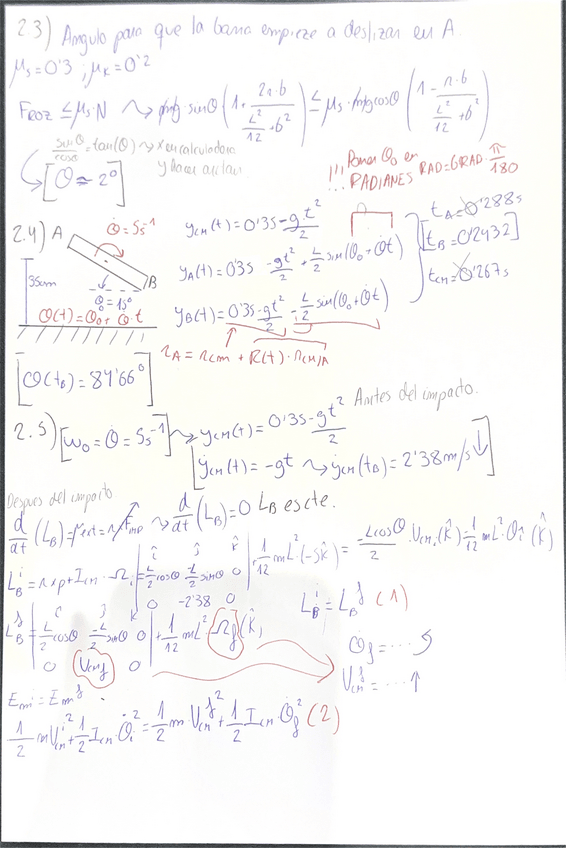 2.3) Angulo para que la barra empiece a deslizar en A.
μs=0'3 ; μk=0'2
Froz ≤ μs·N ⤳ mg·sinθ (1 + 2n·b / (L²/12 + b²)) ≤ μs·mg cosθ (1 - n·b / (L²/12 + b²))
sinθ/cosθ = tan(θ) ⤳ x en calculadora
y hacer arctan
[θ ≈ 2°]
!!! Poner θ₀ en
RADIANES RAD=GRAD·π/180
2.4) A θ̇=5s⁻¹ B
35cm
θ₀=15°
θ(t)=θ₀+θ̇·t
y_CM(t)=0'35-gt²/2
y_A(t)=0'35-gt²/2+L/2 sin(θ₀+θ̇t)
y_B(t)=0'35-gt²/2-L/2 sin(θ₀+θ̇t)
t_A=0'288s
[t_B=0'2432]
t_CM=0'267s
r_A=r_CM+R(t)·r_CM/A
[θ(t_B)=84'66°]
2.5) [ω₀=θ̇=5s⁻¹] ⤳ y_CM(t)=0'35-gt²/2 Antes del impacto.
[ẏ_CM(t)=-gt ⤳ ẏ_CM(t_B)=2'38m/s ↓]
Despues del impacto.
d/dt (L_B)=μext=r∧Fimp ⤳ d/dt (L_B)=0 L_B es cte.
L_B^i=r×p+I_CM·Ω_i=| î ĵ k̂ ; L/2 cosθ -L/2 sinθ 0 ; 0 -2'38 0 |+1/12 mL²(-5k̂)=-L cosθ/2·V_CM,i(k̂)-1/12 mL²·θ̇i(k̂)
L_B^f=| i j k ; L/2 cosθ -L/2 sinθ 0 ; 0 V_CMf 0 |+1/12 mL²·Ω_f(k̂)
L_B^i=L_B^f (1)
θ̇_f=.....
V_CM^f=.....↑
E_mi=E_mf
1/2 mV_CM^i²+1/2 I_CM·θ̇_i²=1/2 m·V_CM^f²+1/2 I_CM·θ̇_f² (2)